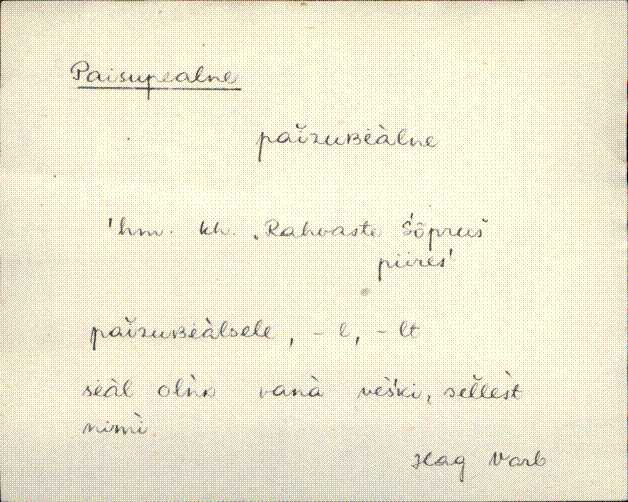 Paisupealne
pàizuʙèàlne
'hm. kh. „Rahvaste Sõprus"
piires'
pàizuʙèàlsele, -l, -lt
sèàl olnò vanà vèški, sellèst
nimì
Hag Varb